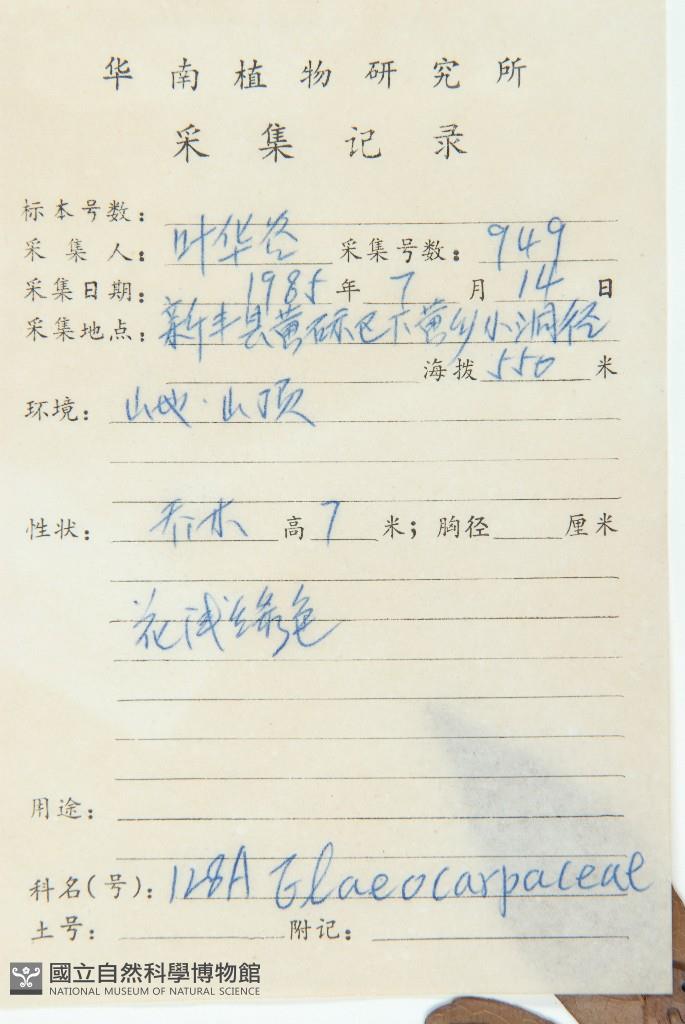 华南植物研究所
采集记录
标本号数：
采集人：叶华谷 采集号数：949
采集日期：1985年7月14日
采集地点：新丰县黄磜区下黄乡小洞径
海拨550米
环境：山地·山顶
性状：乔木 高7米；胸径 厘米
花浅黄绿色
用途：
科名(号)：128A Elaeocarpaceae
土号： 附记：
國立自然科學博物館
NATIONAL MUSEUM OF NATURAL SCIENCE